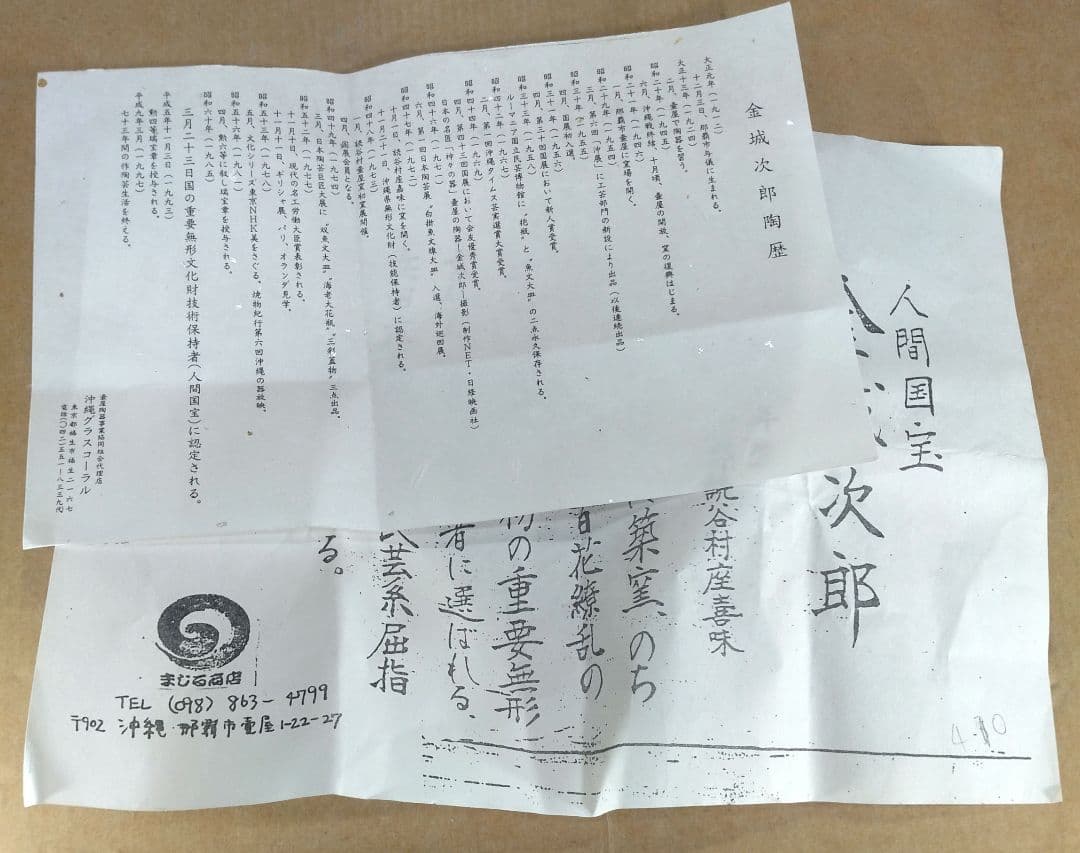 金城次郎陶歴
大正元年(一九一二)
十二月三日、那覇市与儀に生まれる。
大正十三年(一九二四)
二月、壷屋で陶器を習う。
昭和二十年(一九四五)
六月、沖縄戦終結、十月頃、壷屋の開放、窯の復興はじまる。
昭和二十一年(一九四六)
一月、那覇市壷屋に窯場を開く。
昭和二十九年(一九五四)
三月、第六回「沖展」に工芸部門の新設により出品(以後連続出品)
昭和三十年(一九五五)
四月、国展初入選。
昭和三十一年(一九五六)
四月、第三十回国展において新人賞受賞。
昭和三十三年(一九五八)
ルーマニア国立民芸博物館に“抱瓶”と“魚文大皿”の二点永久保存される。
昭和四十二年(一九六七)
二月、第一回沖縄タイムス芸術選賞大賞受賞。
昭和四十四年(一九六九)
四月、第四十三回国展において会友優秀賞受賞。
日本の名匠「神々の器」壷屋の陶器―金城次郎―撮影(制作NET・日経映画社)
昭和四十六年(一九七一)
六月、第一回日本陶芸展“白掛魚文線大皿”入選、海外巡回展。
昭和四十七年(一九七二)
十月一日、読谷村座喜味に窯を開く。
十二月二十一日、沖縄県無形文化財(技能保持者)に認定される。
昭和四十八年(一九七三)
一月、読谷村壷屋窯初窯展開催。
四月、国展会員となる。
昭和四十九年(一九七四)
三月、日本陶芸巨匠大展に“双魚文大皿”“海老大花瓶”“三彩蓋物”三点出品。
昭和五十二年(一九七七)
十一月十日、現代の名工労働大臣賞表彰される。
十一月十一日、ギリシャ展、パリ、オランダ見学。
昭和五十三年(一九七八)
五月、文化シリーズ東京NHK美をさぐる。焼物紀行第六回沖縄の器放映。
昭和五十六年(一九八一)
四月、勲六等に叙し瑞宝章を授与される。
昭和六十年(一九八五)
三月二十三日国の重要無形文化財技術保持者(人間国宝)に認定される。
平成五年十一月三日(一九九三)
勲四等瑞宝章を授与される。
平成九年三月(一九九七)
七十三年間の作陶芸生活を終える。
壷屋陶器事業協同組合代理店
沖縄グラスコーラル
東京都福生市福生二一六七
電話(〇四二)五五一―八三五九
人間国宝
次郎
読谷村座喜味
築窯、のち
百花繚乱の
物の重要無形
者に選ばれる、
芸系屈指
る。
まじる商店
TEL (098) 863-4799
〒902 沖縄・那覇市壷屋1-22-27
4.10